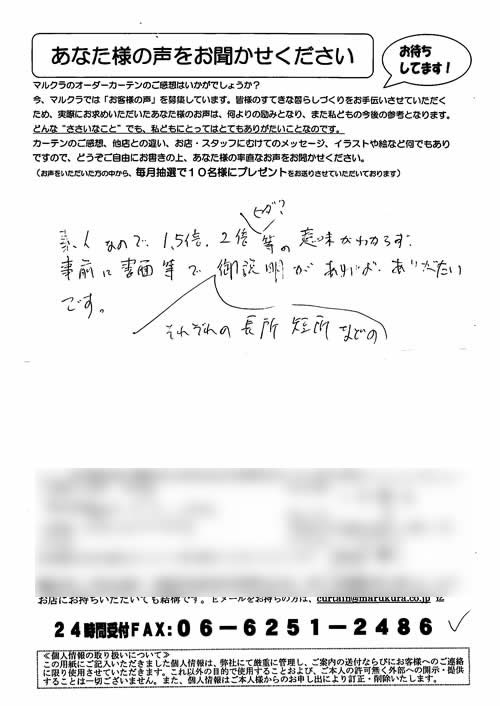 あなた様の声をお聞かせください
お待ち
してます！
マルクラのオーダーカーテンのご感想はいかがでしょうか？
今、マルクラでは「お客様の声」を募集しています。皆様のすてきな暮らしづくりをお手伝いさせていただく
ため、実際にお求めいただいたあなた様のお声は、何よりの励みとなり、また私どもの今後の参考となります。
どんな“ささいなこと”でも、私どもにとってはとてもありがたいことなのです。
カーテンのご感想、他店との違い、お店・スタッフにむけてのメッセージ、イラストや絵など何でもあり
ですので、どうぞご自由にお書きの上、あなた様の率直なお声をお聞かせください。
（お声をいただいた方の中から、毎月抽選で１０名様にプレゼントをお送りさせていただいております）
ヒダ？
素人なので、1.5倍、2倍等の意味がわからず、
事前に書面等で御説明があれば、ありがたい
です。
それぞれの長所 短所などの
お店にお持ちいただいても結構です。Ｅメールをお持ちの方は、curtain@marukura.co.jp
２４時間受付FAX：０６－６２５１－２４８６
≪個人情報の取り扱いについて≫
この用紙にご記入いただきました個人情報は、弊社にて厳重に管理し、ご案内の送付ならびにお客様へのご連絡
に限り使用させていただきます。これ以外の目的で使用することおよび、ご本人の許可無く外部への開示・提供
することは一切ございません。また、個人情報はご本人様からのお申し出により訂正・削除いたします。